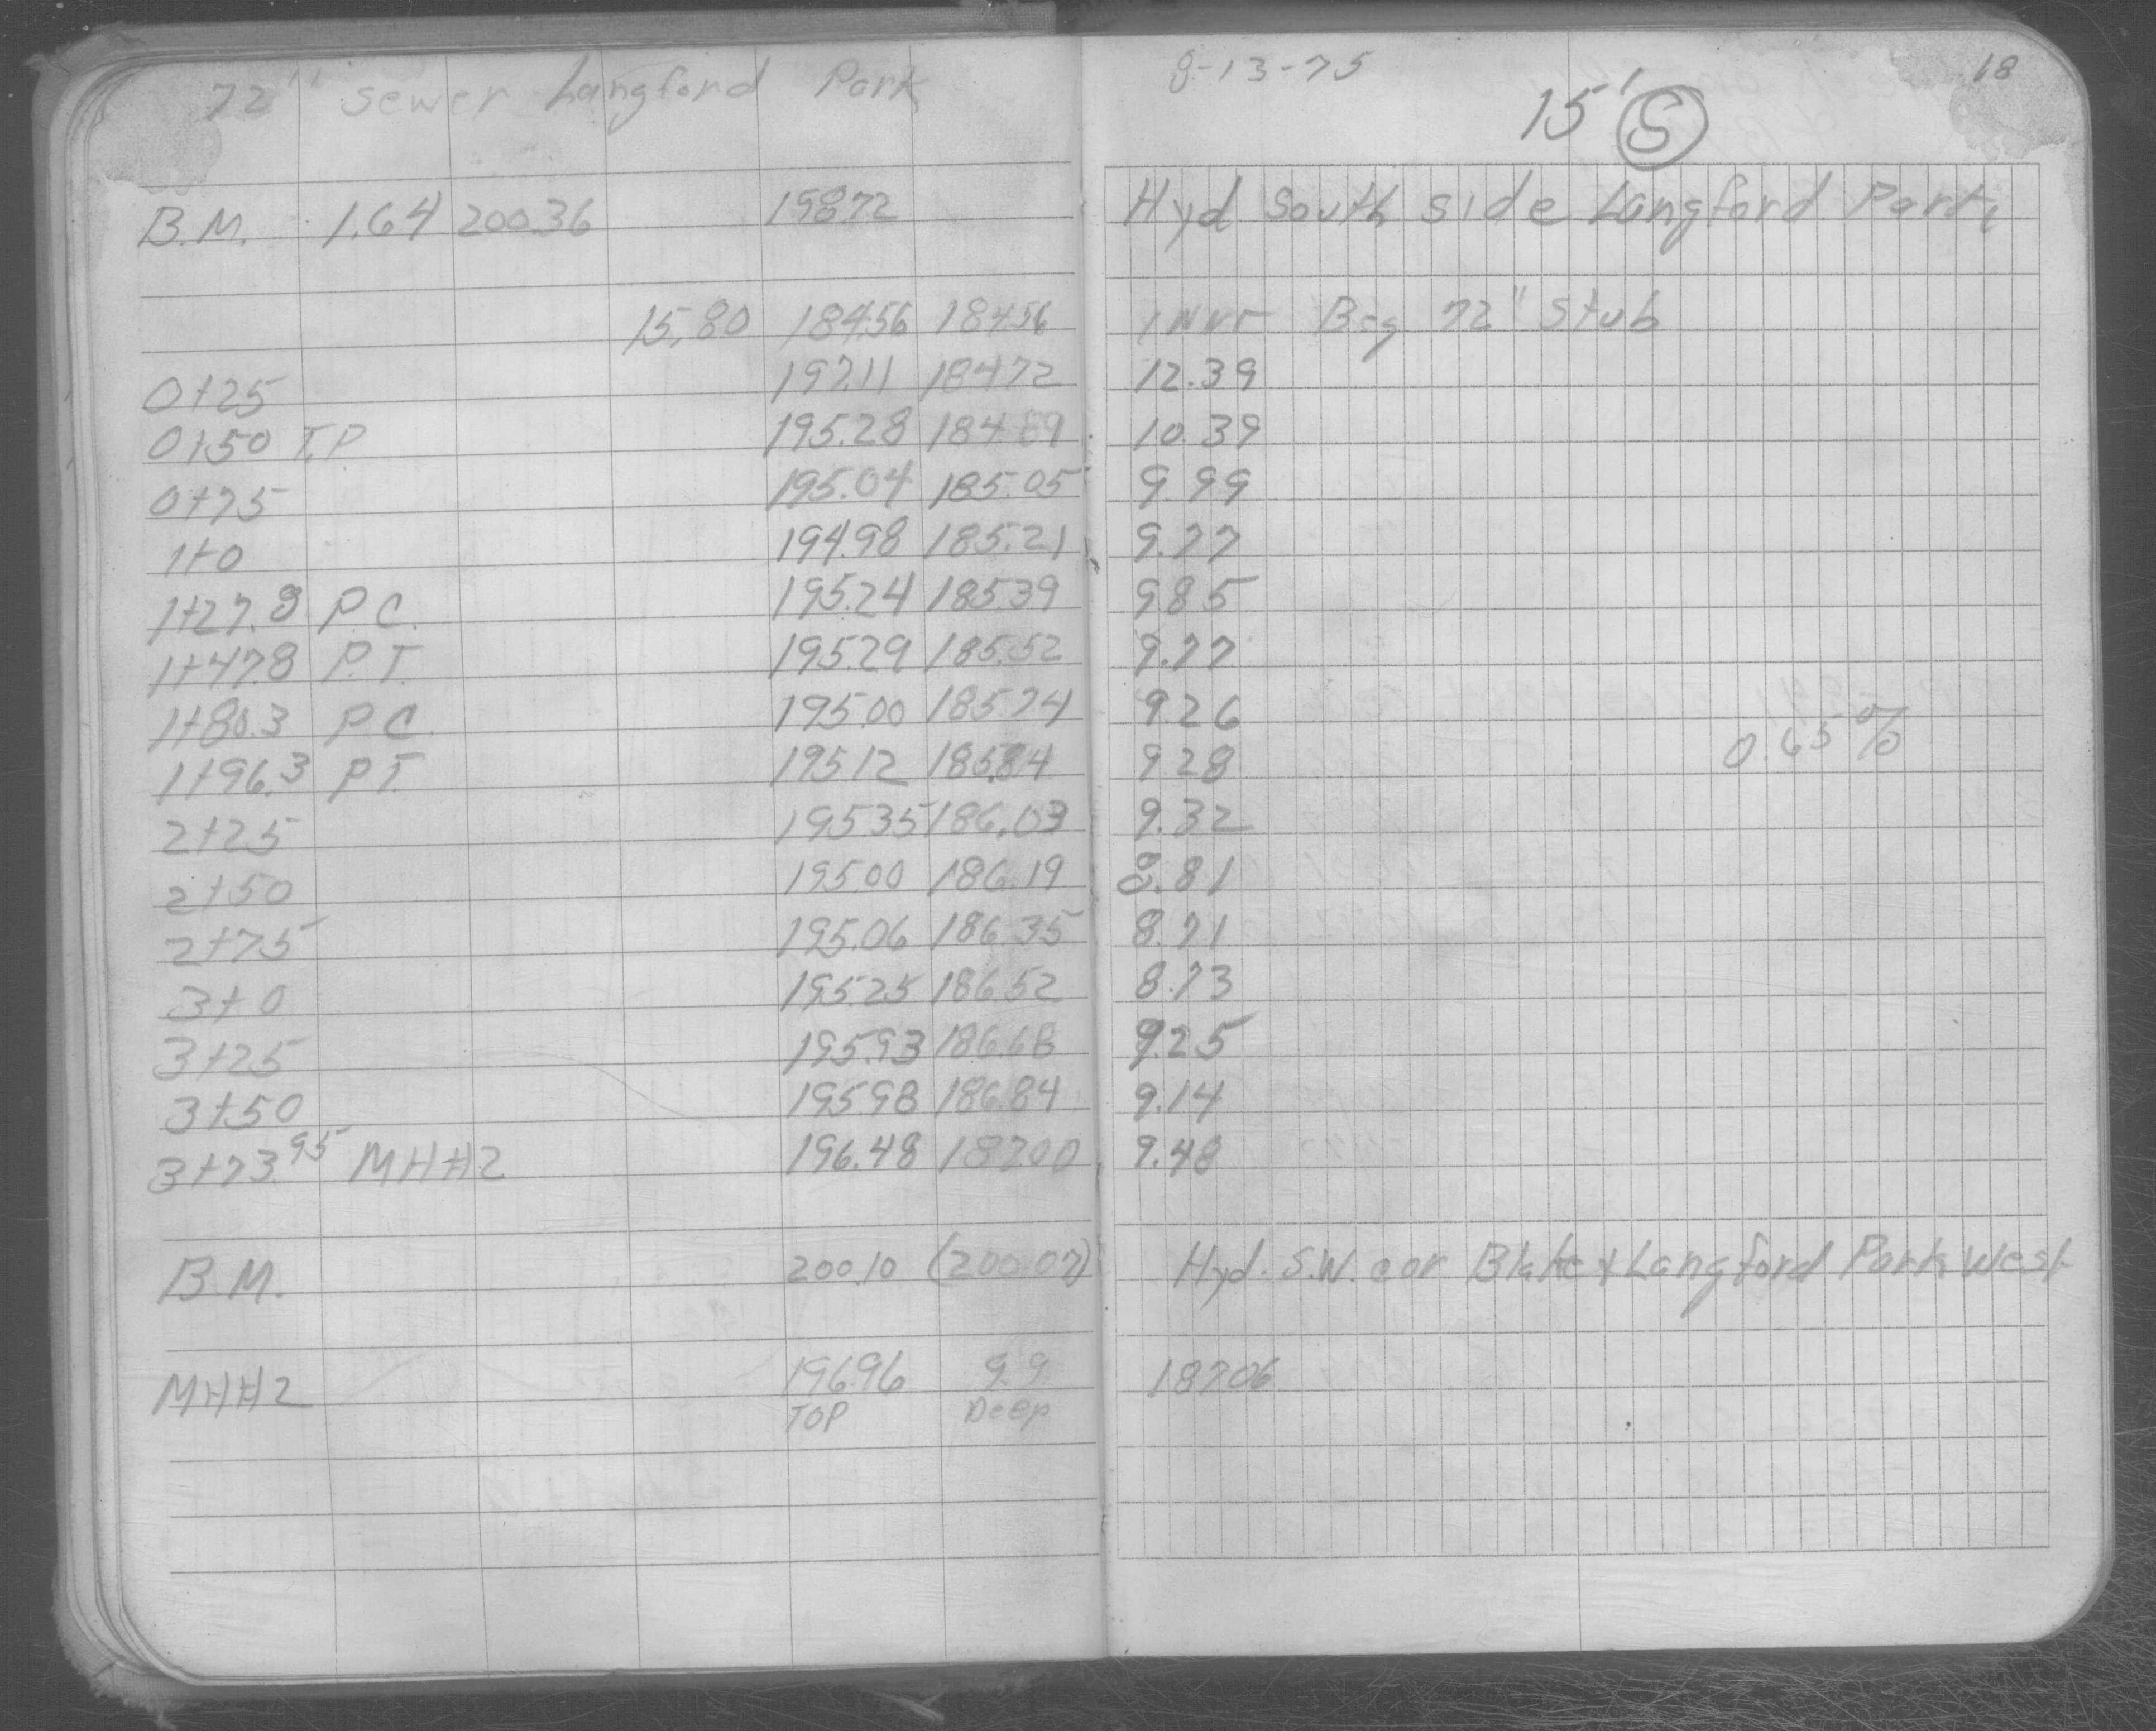 72" Sewer Langford Park 8-13-75 18
15' S
B.M. 1.64 200.36 198.72 Hyd South side Langford Park
15.80 184.56 184.56 invr Beg 72" Stub
0+25 197.11 184.72 12.39
0+50 T.P. 195.28 184.89 10.39
0+75 195.04 185.05 9.99
1+0 194.98 185.21 9.77
1+27.8 P.C. 195.24 185.39 9.85
1+47.8 P.T. 195.29 185.52 9.77
1+80.3 P.C. 195.00 185.74 9.26
1+96.3 P.T. 195.12 185.84 9.28 0.65%
2+25 195.35 186.03 9.32
2+50 195.00 186.19 8.81
2+75 195.06 186.35 8.71
3+0 195.25 186.52 8.73
3+25 195.93 186.68 9.25
3+50 195.98 186.84 9.14
3+73.95 MH#2 196.48 187.00 9.48
B.M. 200.10 (200.07) Hyd. S.W. cor Blake & Langford Park West
MH#2 196.96 9.9 187.06
TOP Deep